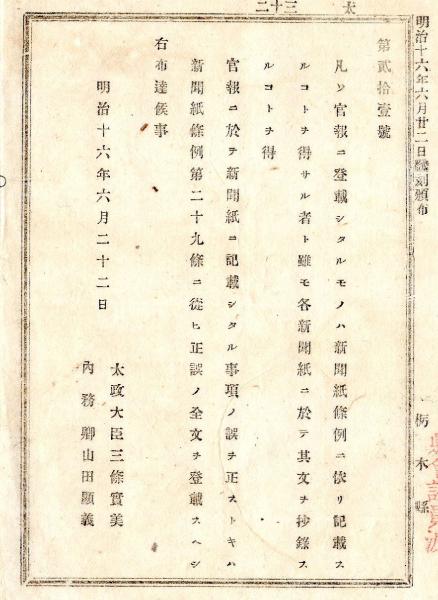 明治十六年六月廿二日飜刻頒布
栃木縣
太 三十二
第貳拾壹號
凡ソ官報ニ登載シタルモノハ新聞紙條例ニ依リ記載ス
ルコトヲ得サル者ト雖モ各新聞紙ニ於テ其文ヲ抄錄ス
ルコトヲ得
官報ニ於テ新聞紙ニ記載シタル事項ノ誤ヲ正ストキハ
新聞紙條例第二十九條ニ從ヒ正誤ノ全文ヲ登載スヘシ
右布達候事
明治十六年六月二十二日
太政大臣三條實美
內務卿山田顯義